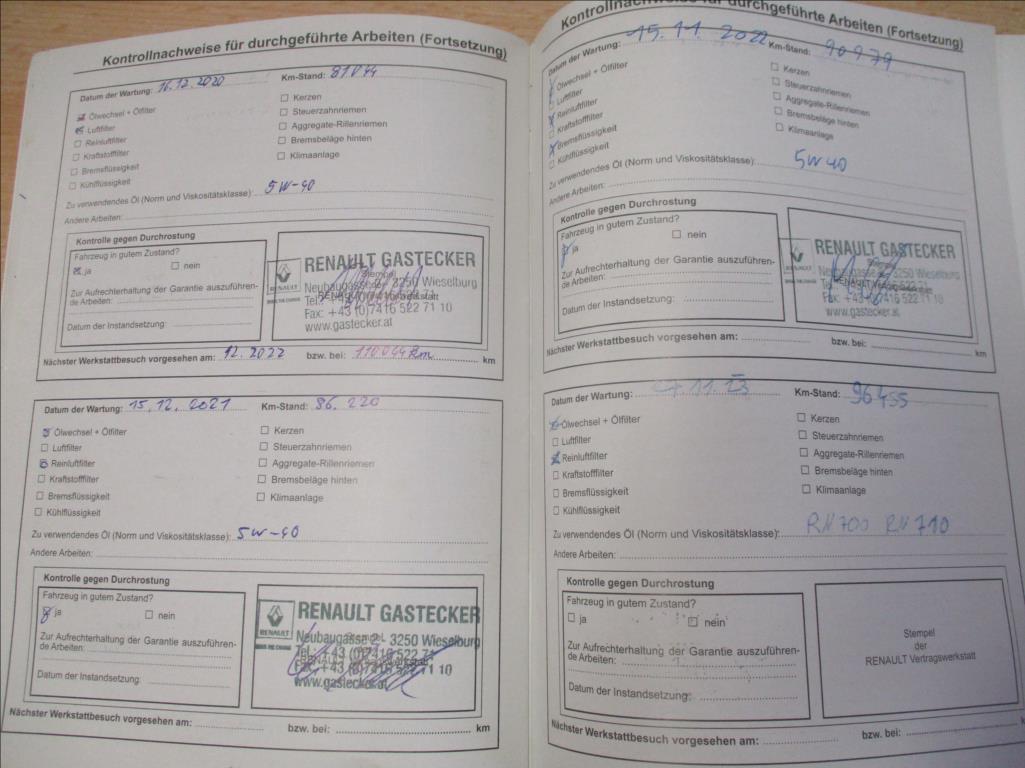 Kontrollnachweise für durchgeführte Arbeiten (Fortsetzung)
Datum der Wartung: 16.12.2020 Km-Stand: 81044
Ölwechsel + Ölfilter
Luftfilter
Reinluftfilter
Kraftstofffilter
Bremsflüssigkeit
Kühlflüssigkeit
Kerzen
Steuerzahnriemen
Aggregate-Rillenriemen
Bremsbeläge hinten
Klimaanlage
Zu verwendendes Öl (Norm und Viskositätsklasse): 5W-40
Andere Arbeiten:
Kontrolle gegen Durchrostung
Fahrzeug in gutem Zustand?
ja nein
Zur Aufrechterhaltung der Garantie auszuführen-
de Arbeiten:
Datum der Instandsetzung:
RENAULT GASTECKER
Neubaugasse 2 3250 Wieselburg
Tel.: +43 (0)7416 522 71
Fax: +43 (0)7416 522 71 10
www.gastecker.at
Nächster Werkstattbesuch vorgesehen am: 12.2022 bzw. bei: 110044 Km km
Datum der Wartung: 15.12.2021 Km-Stand: 86.220
Ölwechsel + Ölfilter
Luftfilter
Reinluftfilter
Kraftstofffilter
Bremsflüssigkeit
Kühlflüssigkeit
Kerzen
Steuerzahnriemen
Aggregate-Rillenriemen
Bremsbeläge hinten
Klimaanlage
Zu verwendendes Öl (Norm und Viskositätsklasse): 5W-40
Andere Arbeiten:
Kontrolle gegen Durchrostung
Fahrzeug in gutem Zustand?
ja nein
Zur Aufrechterhaltung der Garantie auszuführen-
de Arbeiten:
Datum der Instandsetzung:
RENAULT GASTECKER
Neubaugasse 2 3250 Wieselburg
Tel.: +43 (0)7416 522 71
Fax: +43 (0)7416 522 71 10
www.gastecker.at
Nächster Werkstattbesuch vorgesehen am: bzw. bei: km
Kontrollnachweise für durchgeführte Arbeiten (Fortsetzung)
Datum der Wartung: 15.11.2022 Km-Stand: 90979
Ölwechsel + Ölfilter
Luftfilter
Reinluftfilter
Kraftstofffilter
Bremsflüssigkeit
Kühlflüssigkeit
Kerzen
Steuerzahnriemen
Aggregate-Rillenriemen
Bremsbeläge hinten
Klimaanlage
Zu verwendendes Öl (Norm und Viskositätsklasse): 5W40
Andere Arbeiten:
Kontrolle gegen Durchrostung
Fahrzeug in gutem Zustand?
ja nein
Zur Aufrechterhaltung der Garantie auszuführen-
de Arbeiten:
Datum der Instandsetzung:
RENAULT GASTECKER
Neubaugasse 2 3250 Wieselburg
Fax: +43 (0)7416 522 71 10
www.gastecker.at
Nächster Werkstattbesuch vorgesehen am: bzw. bei: km
Datum der Wartung: 11.23 Km-Stand: 96455
Ölwechsel + Ölfilter
Luftfilter
Reinluftfilter
Kraftstofffilter
Bremsflüssigkeit
Kühlflüssigkeit
Kerzen
Steuerzahnriemen
Aggregate-Rillenriemen
Bremsbeläge hinten
Klimaanlage
Zu verwendendes Öl (Norm und Viskositätsklasse): RN700 RN710
Andere Arbeiten:
Kontrolle gegen Durchrostung
Fahrzeug in gutem Zustand?
ja nein
Zur Aufrechterhaltung der Garantie auszuführen-
de Arbeiten:
Datum der Instandsetzung:
Stempel
der
RENAULT Vertragswerkstatt
Nächster Werkstattbesuch vorgesehen am: bzw. bei: